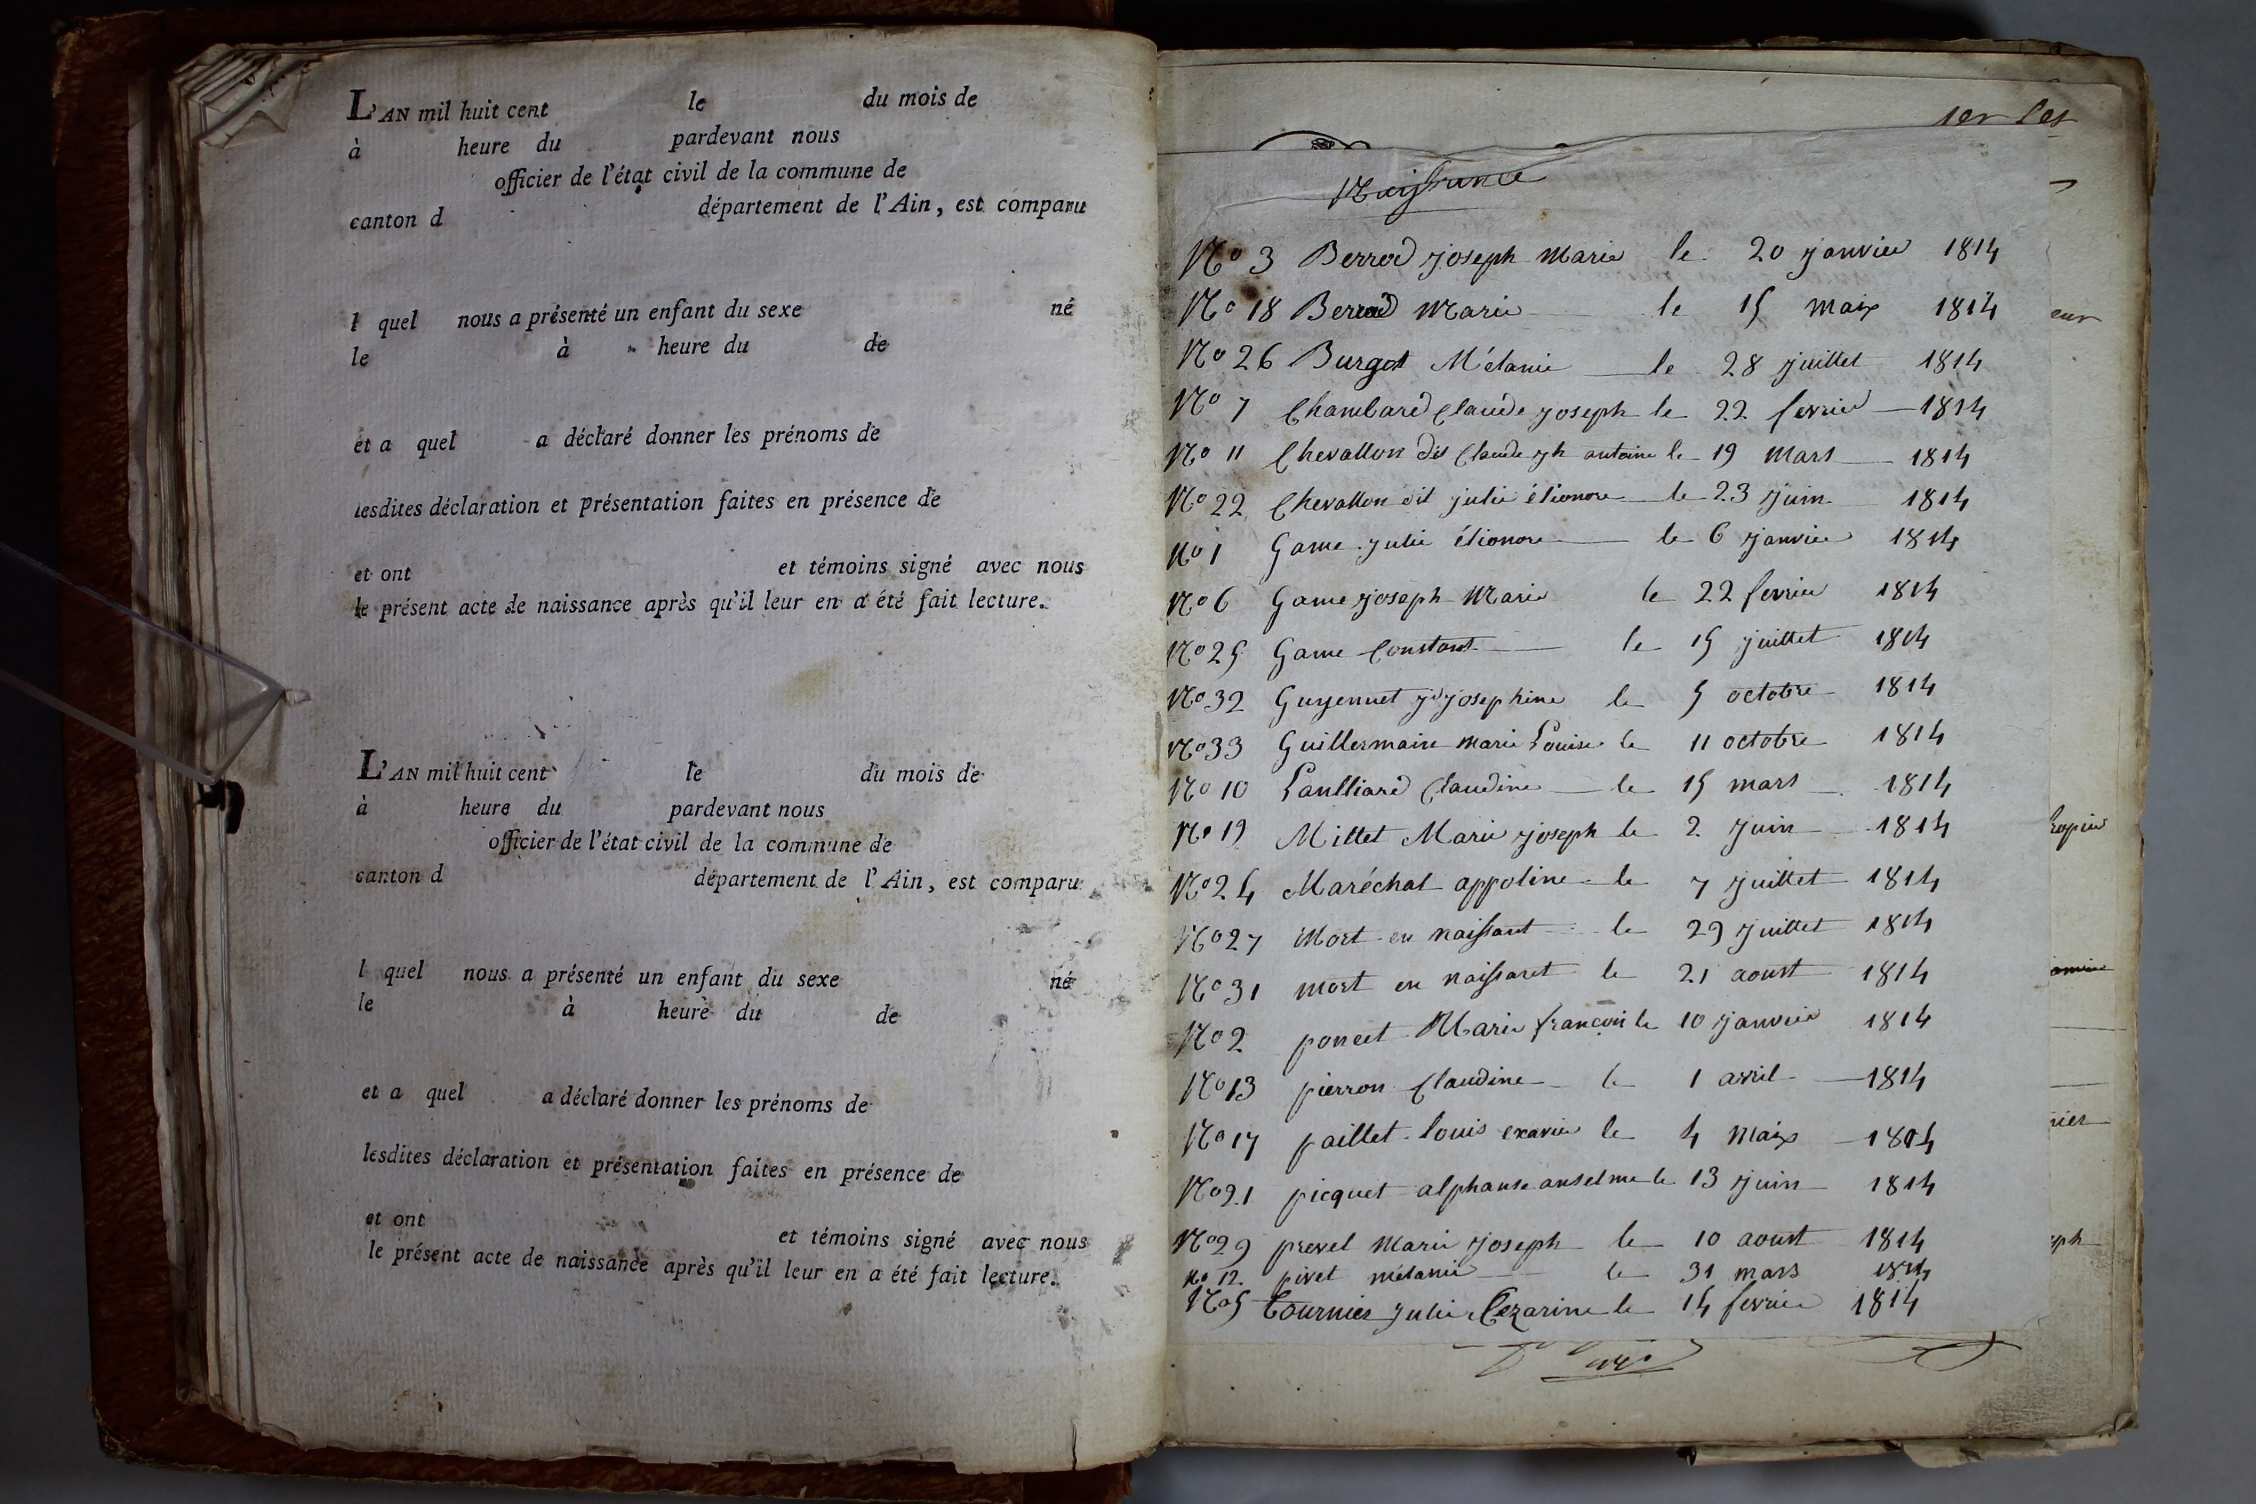 L'AN mil huit cent le du mois de
à heure du pardevant nous
officier de l'état civil de la commune de
canton d département de l'Ain, est comparu
l quel nous a présenté un enfant du sexe né
le à heure du de
et a quel a déclaré donner les prénoms de
lesdites déclaration et présentation faites en présence de
et ont et témoins signé avec nous
le présent acte de naissance après qu'il leur en a été fait lecture.
L'AN mil huit cent le du mois de
à heure du pardevant nous
officier de l'état civil de la commune de
canton d département de l'Ain, est comparu
l quel nous a présenté un enfant du sexe né
le à heure du de
et a quel a déclaré donner les prénoms de
lesdites déclaration et présentation faites en présence de
et ont et témoins signé avec nous
le présent acte de naissance après qu'il leur en a été fait lecture.
Naissance
No 3 Berrod joseph Marie le 20 janvier 1814
No 18 Berrod Marie le 15 maix 1814
No 26 Burgot Mélanie le 28 juillet 1814
No 7 Chambard Claude joseph le 22 fevrier 1814
No 11 Chevallon dit Claude jh antoine le 19 mars 1814
No 22 Chevallon dit julie élionore le 23 juin 1814
No 1 Game julie élionore le 6 janvier 1814
No 6 Game joseph Marie le 22 fevrier 1814
No 25 Game Constant le 15 juillet 1814
No 32 Guyennet josephine le 5 octobre 1814
No 33 Guillermain marie Louise le 11 octobre 1814
No 10 Laulliard Claudine le 15 mars 1814
No 19 Millet Marie joseph le 2 juin 1814
No 24 Maréchal appoline le 7 juillet 1814
No 27 Mort en naissant le 29 juillet 1814
No 31 mort en naissant le 21 aoust 1814
No 2 poncet Marie françois le 10 janvier 1814
No 13 pierron Claudine le 1 avril 1814
No 17 paillet louis exavier le 4 maix 1814
No 21 picquet alphanse anselme le 13 juin 1814
No 29 prevel Marie joseph le 10 aoust 1814
no 12 pivet mélanie le 31 mars 1814
No 5 Tournier julie Cezarine le 14 fevrier 1814